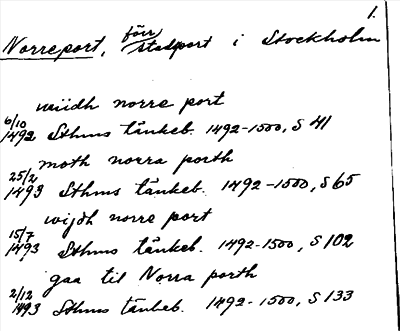 1.
Norreport, förr stadport i Stockholm
widh norre port
6/10 1492 Sthms tänkeb. 1492-1500, S 41
moth norra porth
25/2 1493 Sthms tänkeb. 1492-1500, S 65
wijdh norre port
15/7 1493 Sthms tänkeb. 1492-1500, S 102
gaa til Norra porth
2/12 1493 Sthms tänkeb. 1492-1500, S 133